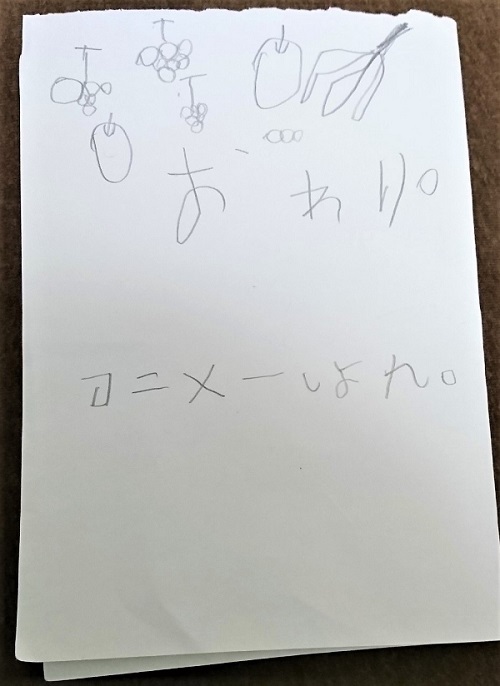 おわり。
コニメーしよれ。